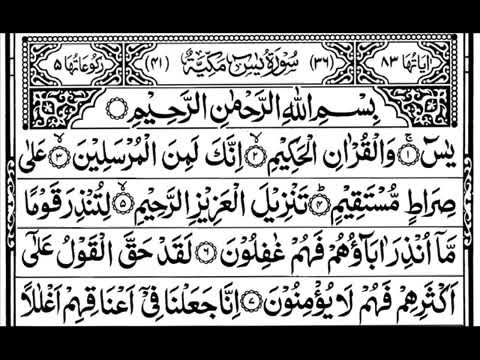 اٰیَاتُهَا ٨٣ (٣٦) سُوْرَةُ يٰسٓ مَكِّيَّةٌ (٤١) رُكُوْعَاتُهَا ٥
بِسْمِ اللّٰهِ الرَّحْمٰنِ الرَّحِيْمِ
يٰسٓ ۚ‏﴿١﴾ وَالْقُرْاٰنِ الْحَكِيْمِ ۙ‏﴿٢﴾ اِنَّكَ لَمِنَ الْمُرْسَلِيْنَ ۙ‏﴿٣﴾ عَلٰى
صِرَاطٍ مُّسْتَقِيْمٍ ؕ‏﴿٤﴾ تَنْزِيْلَ الْعَزِيْزِ الرَّحِيْمِ ۙ‏﴿٥﴾ لِتُنْذِرَ قَوْمًا
مَّاۤ اُنْذِرَ اٰبَآؤُهُمْ فَهُمْ غٰفِلُوْنَ ﴿٦﴾ لَقَدْ حَقَّ الْقَوْلُ عَلٰٓى
اَكْثَرِهِمْ فَهُمْ لَا يُؤْمِنُوْنَ ﴿٧﴾ اِنَّا جَعَلْنَا فِيْۤ اَعْنَاقِهِمْ اَغْلٰلًا